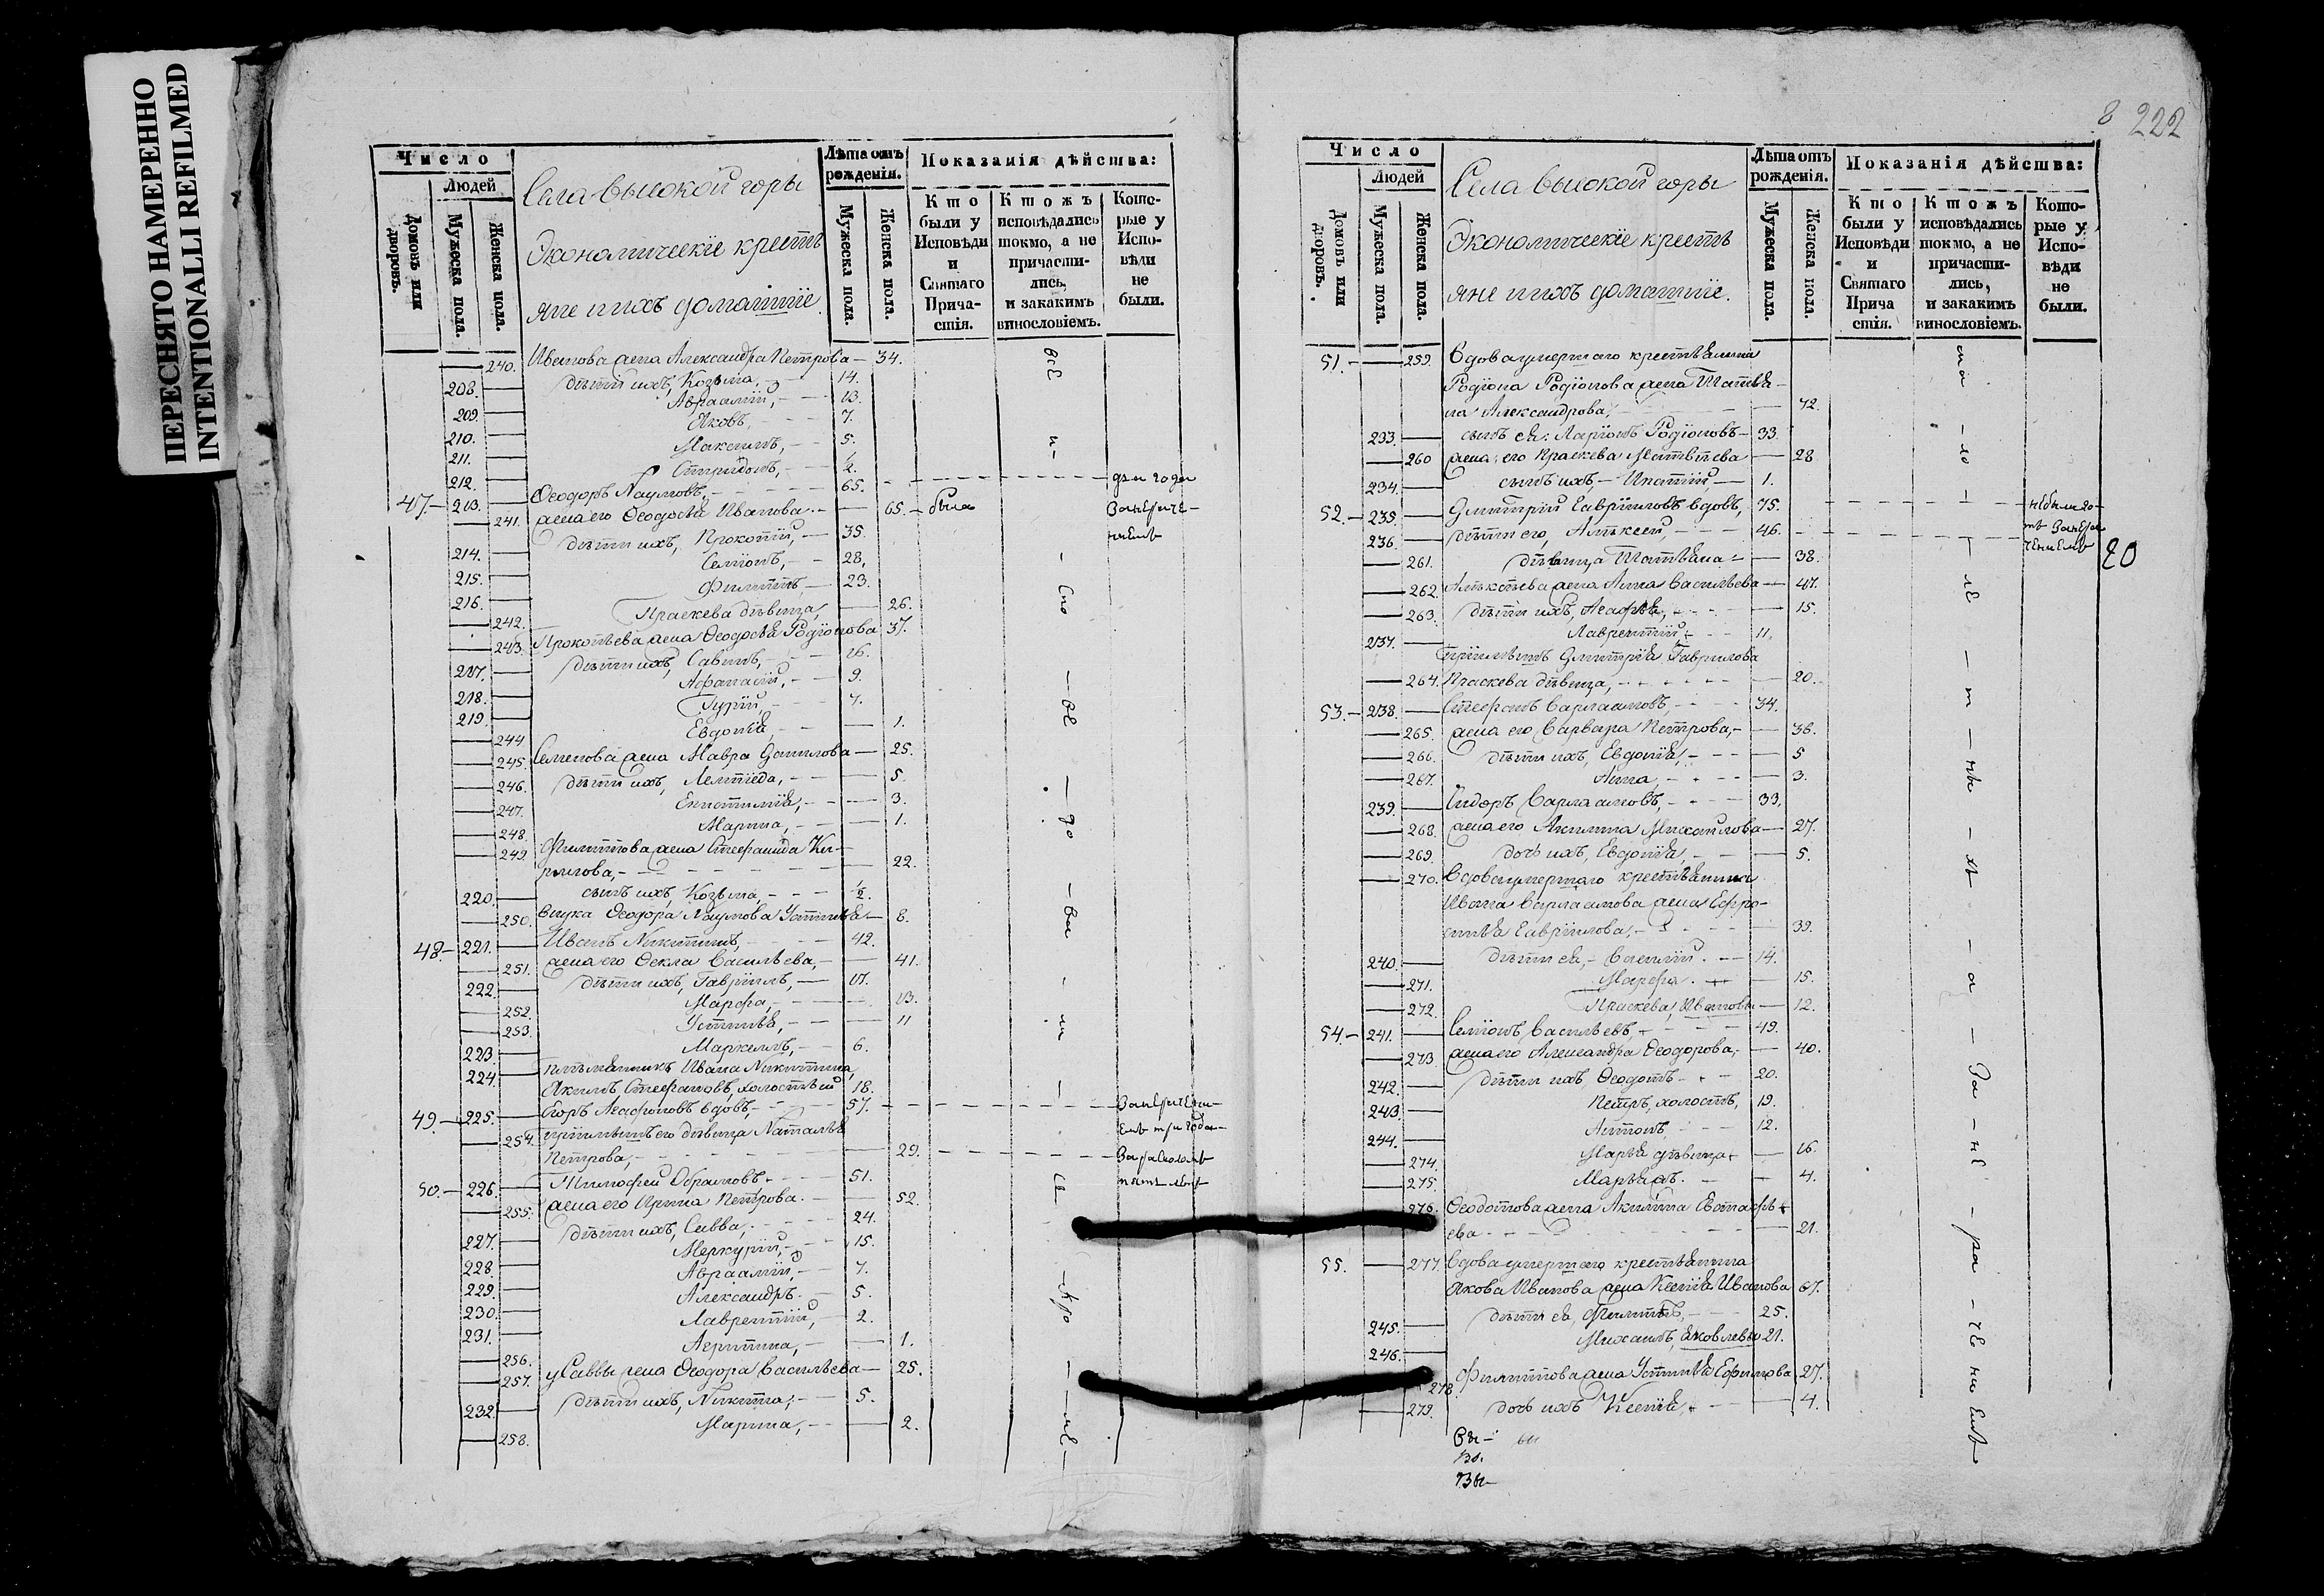 ПЕРЕСНЯТО НАМЕРЕННО
INTENTIONALLI REFILMED
Число
Людей
Домовъ или дворовъ.
Мужеска пола.
Женска пола.
Села высокой горы
Экономическіе кресть
яне и ихъ домашніе.
Лѣта отъ рожденія.
Мужеска пола.
Женска пола.
Показанія дѣйства:
Кто были у Исповѣди и Святаго Прича- стія.
Ктожъ исповѣдались токмо, а не причасти- лись, и закакимъ винословіемъ.
Кото- рые у Испо- вѣди не были.
240. Иванова жена Александра Петрова — 34.
208. дѣти ихъ, Козьма, 14.
209. Авраамій, 13.
210. Яковъ, 7.
211. Максимъ, 5.
212. Спиридонъ,
47. 213. Ѳеодоръ Наумовъ, 65.
241. жена его Ѳеодосья Иванова. 65. была
214. дѣти ихъ, Прокопій, 35.
215. Семіонъ, 28,
216. Филиппъ, 23.
242. Праскева дѣвица, 26.
243. Прокопьева жена Ѳеодосья Родіонова 37.
217. дѣти ихъ, Савинъ, 16.
218. Афанасій, 9.
219. Гурій, 7.
244 Евдокія, 1.
245. Семенова жена Мавра Данилова 25.
246. дѣти ихъ, 5.
247. 3.
248. Марина, 1.
249. Филиппова жена Стефанида Ки-
рилова, 22.
220. сынъ ихъ, Козьма, ½.
250. внука Ѳеодора Наумова Устинья 8.
48. 221. Иванъ Никитинъ, 42.
251. жена его Ѳекла Васильева, 41.
222. дѣти ихъ, Гавріилъ, 17.
252. Марфа, 13.
253. Устинья, 11
223. Маркеллъ, 6.
224. племянникъ Ивана Никитина,
Якимъ Стефановъ, холостый 18.
49. 225. Егоръ Агафоновъ вдовъ, 57.
254. пріимышъ его дѣвица Наталья
Петрова, 29.
50. 226. Тимофей Абрамовъ, 51.
255. жена его Ирина Петрова. 52.
227. дѣти ихъ, Савва, 24.
228. Меркурій, 15.
229. Авраамій, 7.
230. Александръ. 5.
231. Лаврентій, 2.
256. 1.
257. у Саввы жена Ѳеодора Васильева 25.
232. дѣти ихъ, Никита, 5.
258. Марина, 2.
8 222
Число
Людей
Домовъ или дворовъ.
Мужеска пола.
Женска пола.
Села высокой горы
Экономическіе кресть
яне и ихъ домашніе.
Лѣта отъ рожденія.
Мужеска пола.
Женска пола.
Показанія дѣйства:
Кто были у Исповѣди и Святаго Прича стія.
Ктожъ исповѣдались токмо, а не причасти- лись, и закакимъ винословіемъ.
Кото- рые у Испо- вѣди не были.
51. 259. Вдова умершаго крестьянина
Родіона Родіонова жена Татья-
на Александрова, 72.
233. сынъ ея: Ларіонъ Родіоновъ 33.
260 жена его Праскева Матвѣева 28
234. сынъ ихъ, Ипатій 1.
52. 235. Дмитрій Гавріиловъ вдовъ, 75.
236. дѣти его, Алексей 46.
261. дѣвица Татьяна 38.
262. Алексѣева жена Анна Васильева 47.
263. дѣти ихъ, Агафья, 15.
237. Лаврентій, 11.
пріимышъ Дмитрія Гаврилова
264. Праскева дѣвица, 20.
53. 238. Стефанъ Варлаамовъ, 34.
265. жена его Варвара Петрова, 36.
266. дѣти ихъ, Евдокія, 5
267. Анна, 3.
239. Сидоръ Варлаамовъ, 33.
268. жена его Акилина Михаилова 27.
269. дочь ихъ, Евдокія, 5.
270. Вдова умершаго крестьянина
Ивана Варлаамова жена Ефро-
синья Гавріилова, 39.
240. дѣти ея, Василій. 14.
271. Марфа. 15.
272. Праскева, Ивановы 12.
54. 241. Семіонъ Васильевъ, 49.
273 жена его Александра Ѳеодорова, 40.
242. дѣти ихъ Ѳеодотъ 20.
243. Петръ, холостъ, 19.
244. Антонъ, 12.
274. Марья дѣвица 16.
275. Марья жъ. 4.
276. Ѳеодотова жена Акилина Евстафь
ева 21.
55. 277. Вдова умершаго крестьянина
Якова Иванова жена Ксенія Иванова 67.
245. дѣти ея, Филиппъ, 25.
246. Михаилъ, Яковлевы 21.
278 Филиппова жена Устинья Ефимова 27.
279. дочь ихъ Ксенія, 4.
20